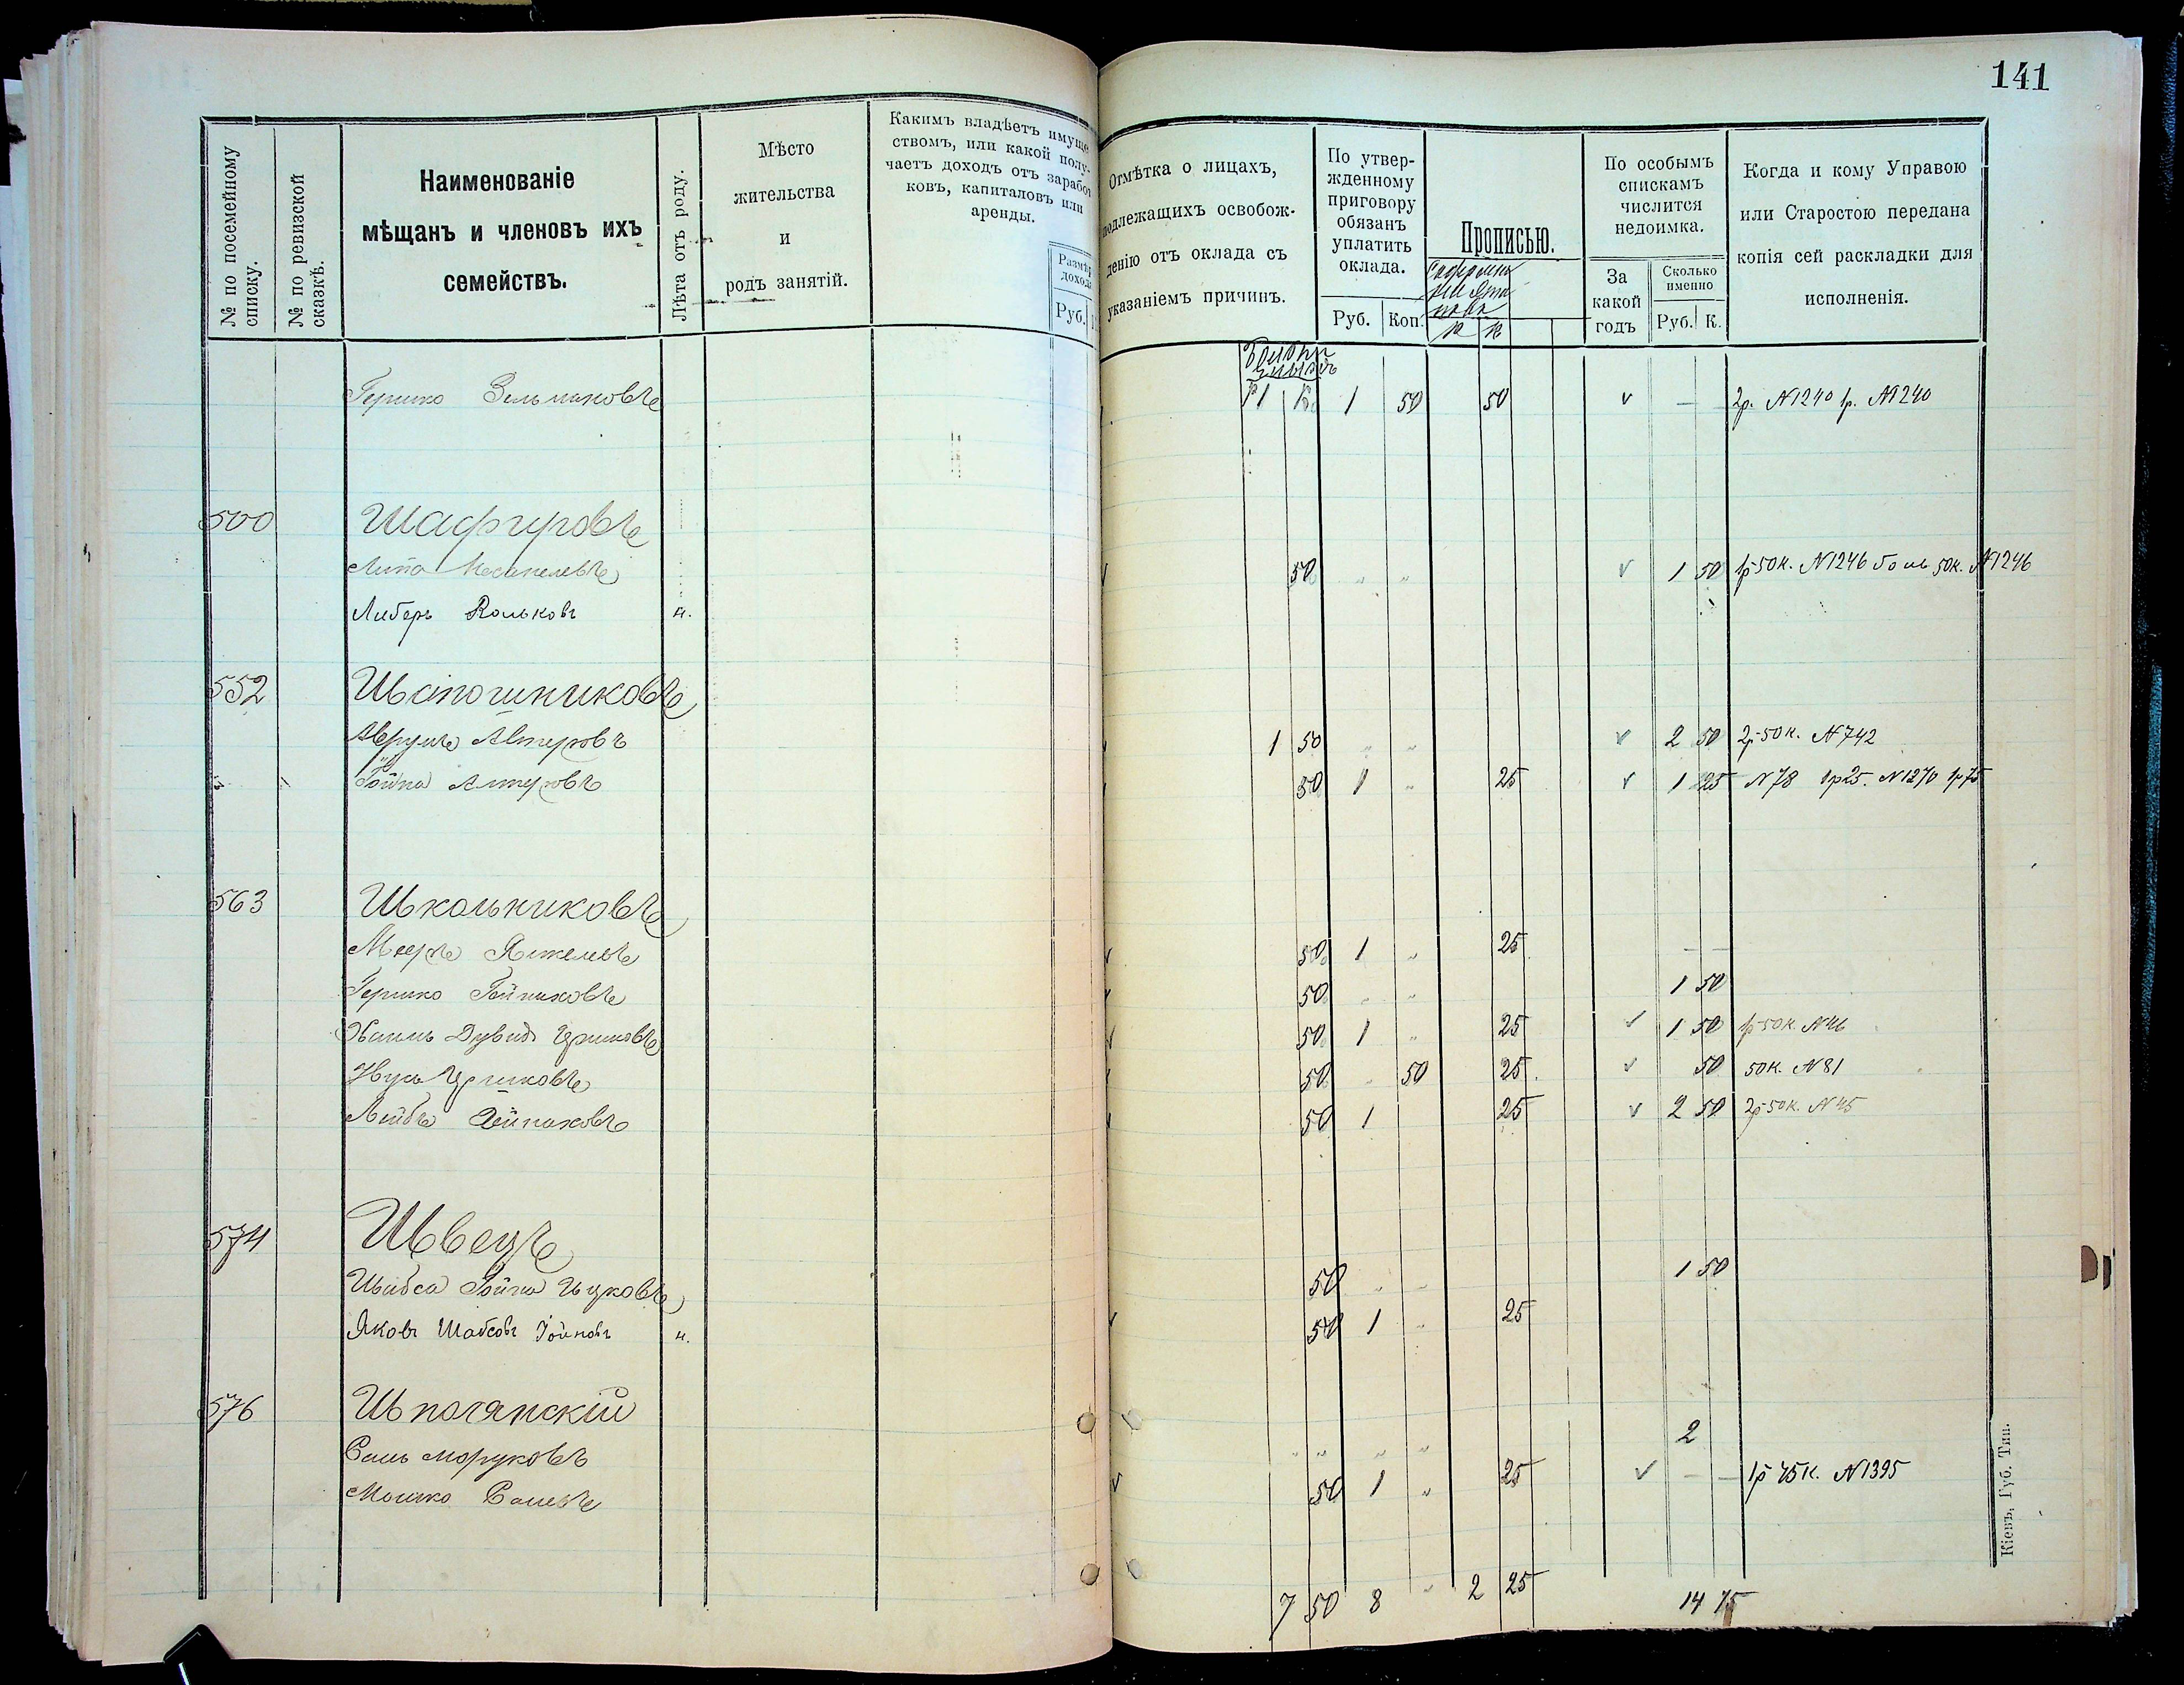 141
№ по посемейному списку.
№ по ревизской сказкѣ.
Наименованіе
мѣщанъ и членовъ ихъ
семействъ.
Лѣта отъ роду.
Мѣсто
жительства
и
родъ занятій.
Какимъ владѣетъ имуще
ствомъ, или какой полу-
чаетъ доходъ отъ заработ
ковъ, капиталовъ или
аренды.
Размѣр
дохода
Руб.
Отмѣтка о лицахъ,
подлежащихъ освобож-
денію отъ оклада съ
указаніемъ причинъ.
По утвер-
жденному
приговору
обязанъ
уплатить
оклада.
Руб. Коп.
Прописью.
К К
По особымъ
спискамъ
числится
недоимка.
За
какой
годъ
Сколько
именно
Руб. К.
Когда и кому Управою
или Старостою передана
копія сей раскладки для
исполненія.
Гершко Зельмановъ 1 1 50 50 v — 2р. №1240 1р. №1240
500 Шафировъ
Липа v 50 " " v 1 50 1р50к. №1246 50к. №1246
Либеръ Вольковъ н.
552 Шапошниковъ
Аврумъ Алтеровъ 1 50 " " v 2 50 2р50к. №742
Іойна Алтеровъ 50 1 " 25 v 1 25 №78 1р25. №1270 1р75
563 Школьниковъ
Мееръ Янкелевъ v 50 1 " 25 — —
Гершко Гойниховъ v 50 " " 1 50
Хаимъ Дувидъ Ершковъ v 50 1 " 25 v 1 50 1р50к. №46
Нусъ Ершковъ 50 " 50 25 v 50 50к. №81
Лейба 50 1 25 v 2 50 2р50к. №45
574 Швецъ
Шабса Іойна Ицковъ 50 " " 1 50
Яковъ Шабсовъ Іойновъ н. v 50 1 " 25
576 Шполянскій
" " " " 2
Мошко v 50 1 " 25 v — — 1р 75к. №1395
7 50 8 " 2 25 14 75
Кіевъ, Губ. Тип.